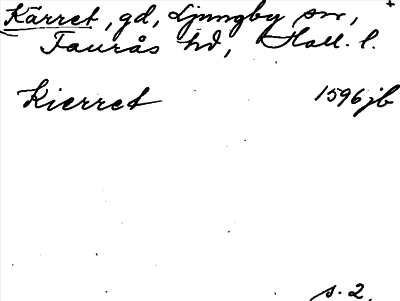 Kärret, gd, Ljungby sn, +
Faurås hd, Hall. l.
Kierret 1596 jb
s. 2.